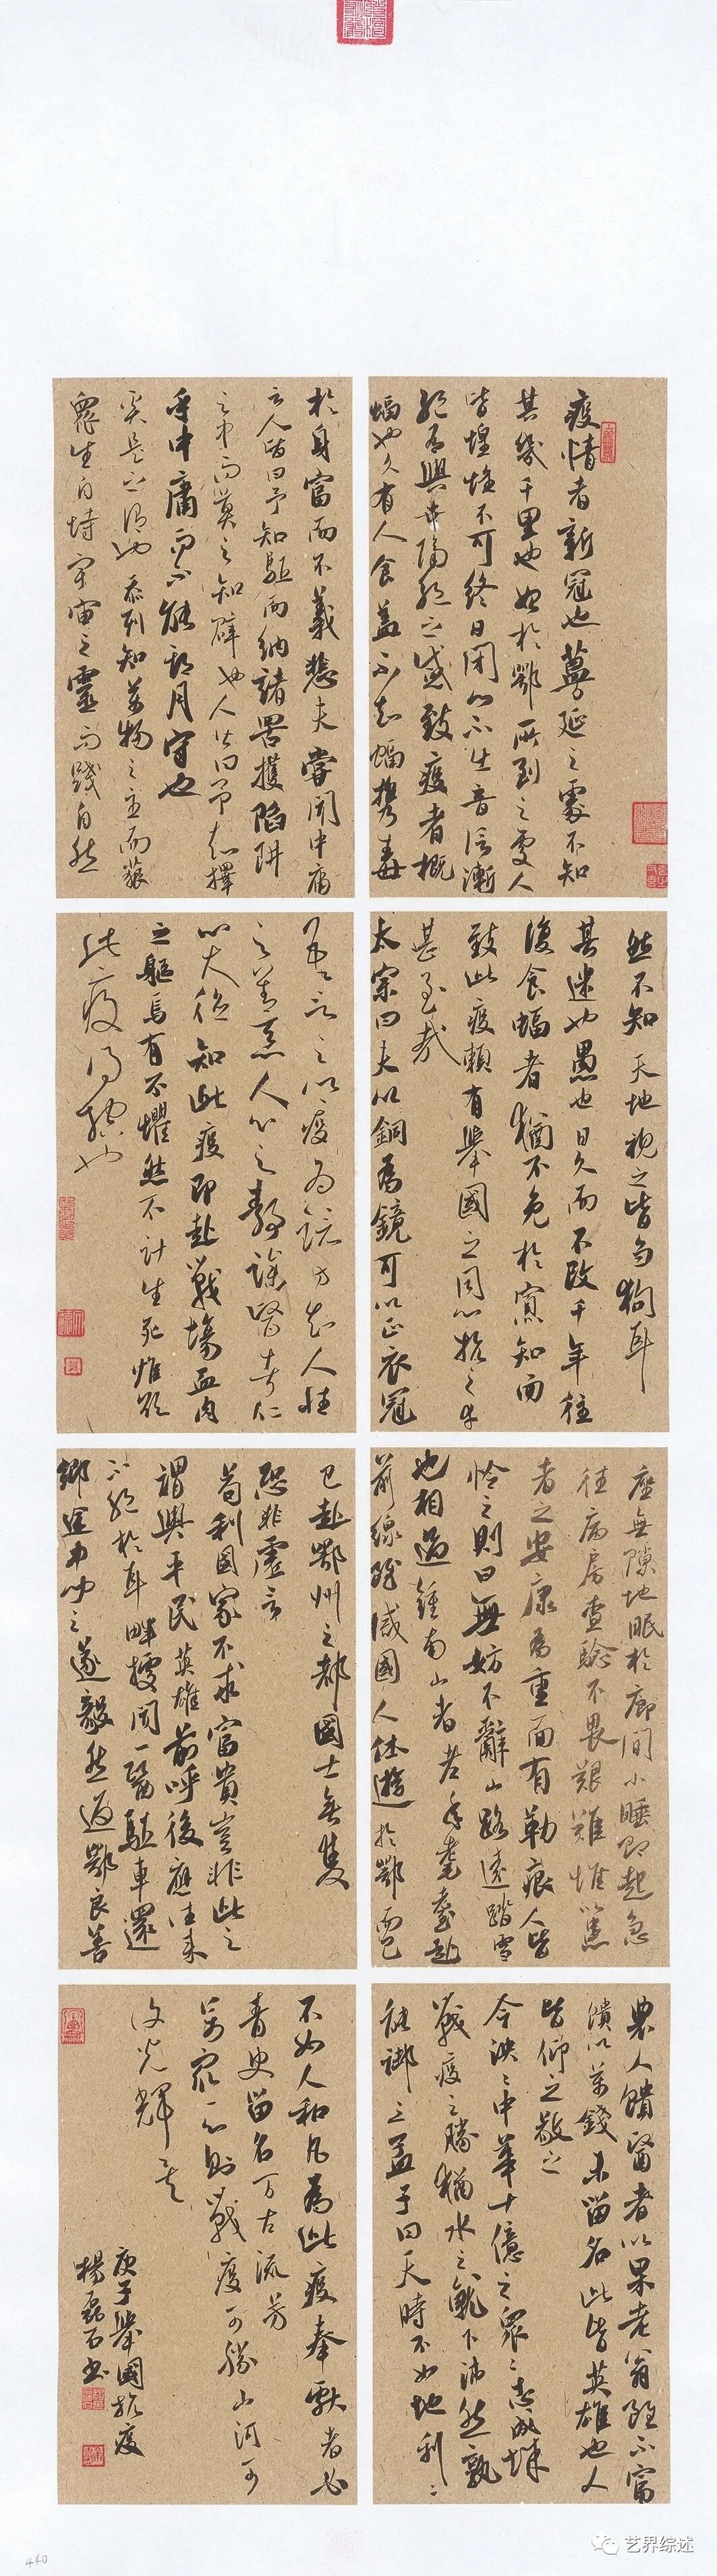 疫情者新冠也蔓延之處不知
其幾千里也始於鄂所到之處人
皆惶惶不可終日閉戶不出音信漸
絕有與世隔絕之感致疫者概
蝠也久有人食蓋不知蝠攜毒
於身富而不義悲夫嘗聞中庸
云人皆曰予知驅而納諸罟擭陷阱
之中而莫之知辟也人皆曰予知擇
乎中庸而不能期月守也
知萬物之
眾生自恃宇宙之靈而踐自然
然不知天地視之皆芻狗耳
甚迷也愚也日久而不改千年往
復食蝠者猶不免於寡知而
致此疫賴有舉國之同心抗之
甚至哉
太宗曰夫以銅為鏡可以正衣冠
人性
之善惡人心之醫者仁
心大德知此疫即赴戰場血肉
之軀焉有不懼然不計生死惟欲
此疫得也
座無隙地眠於廊間小睡即起急
往病房查驗不畏艱難惟以患
者之安康為重面有勒痕人皆
憐之則曰無妨不辭山路遠踏雪
也相迎鍾南山者老年耄耋赴
前線終減國人休遊於鄂而己
已赴鄂州之都國士無雙
恐非虛言
苟利國家不求富貴豈非此之
謂與平民英雄前呼後應
不絕於耳畔據聞一醫駐車還
鄉途中聞之遂毅然返鄂良善
農人饋醫者以果老翁雖不富
饋以萬錢未留名此皆英雄也人
皆仰之敬之
今泱泱中華十億之眾眾志成城
戰疫之勝猶水之就下沛然孰
能禦之孟子曰天時不如地利地利
不如人和凡為此疫奉獻者必
青史留名萬古流芳
萬眾一心則戰疫可勝山河可
復光輝矣
庚子舉國抗疫
楊磊石書
艺界综述
440